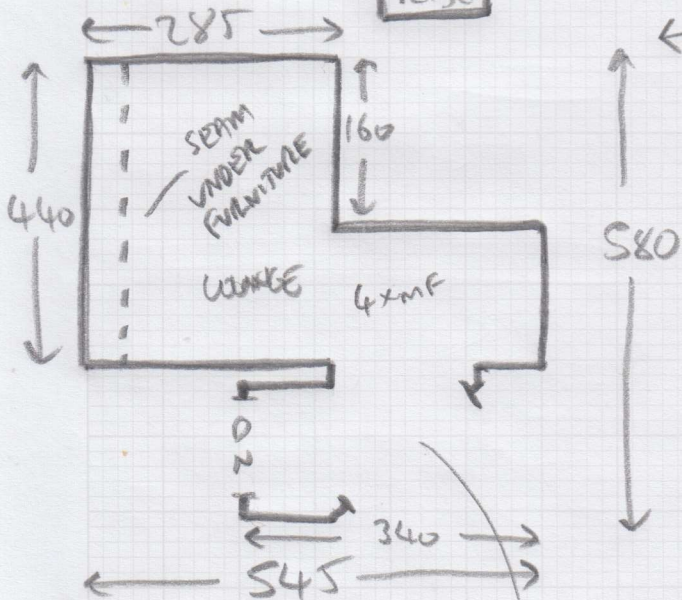 285
160
440
SEAM
UNDER
FURNITURE
580
LOUNGE
4xMF
340
545